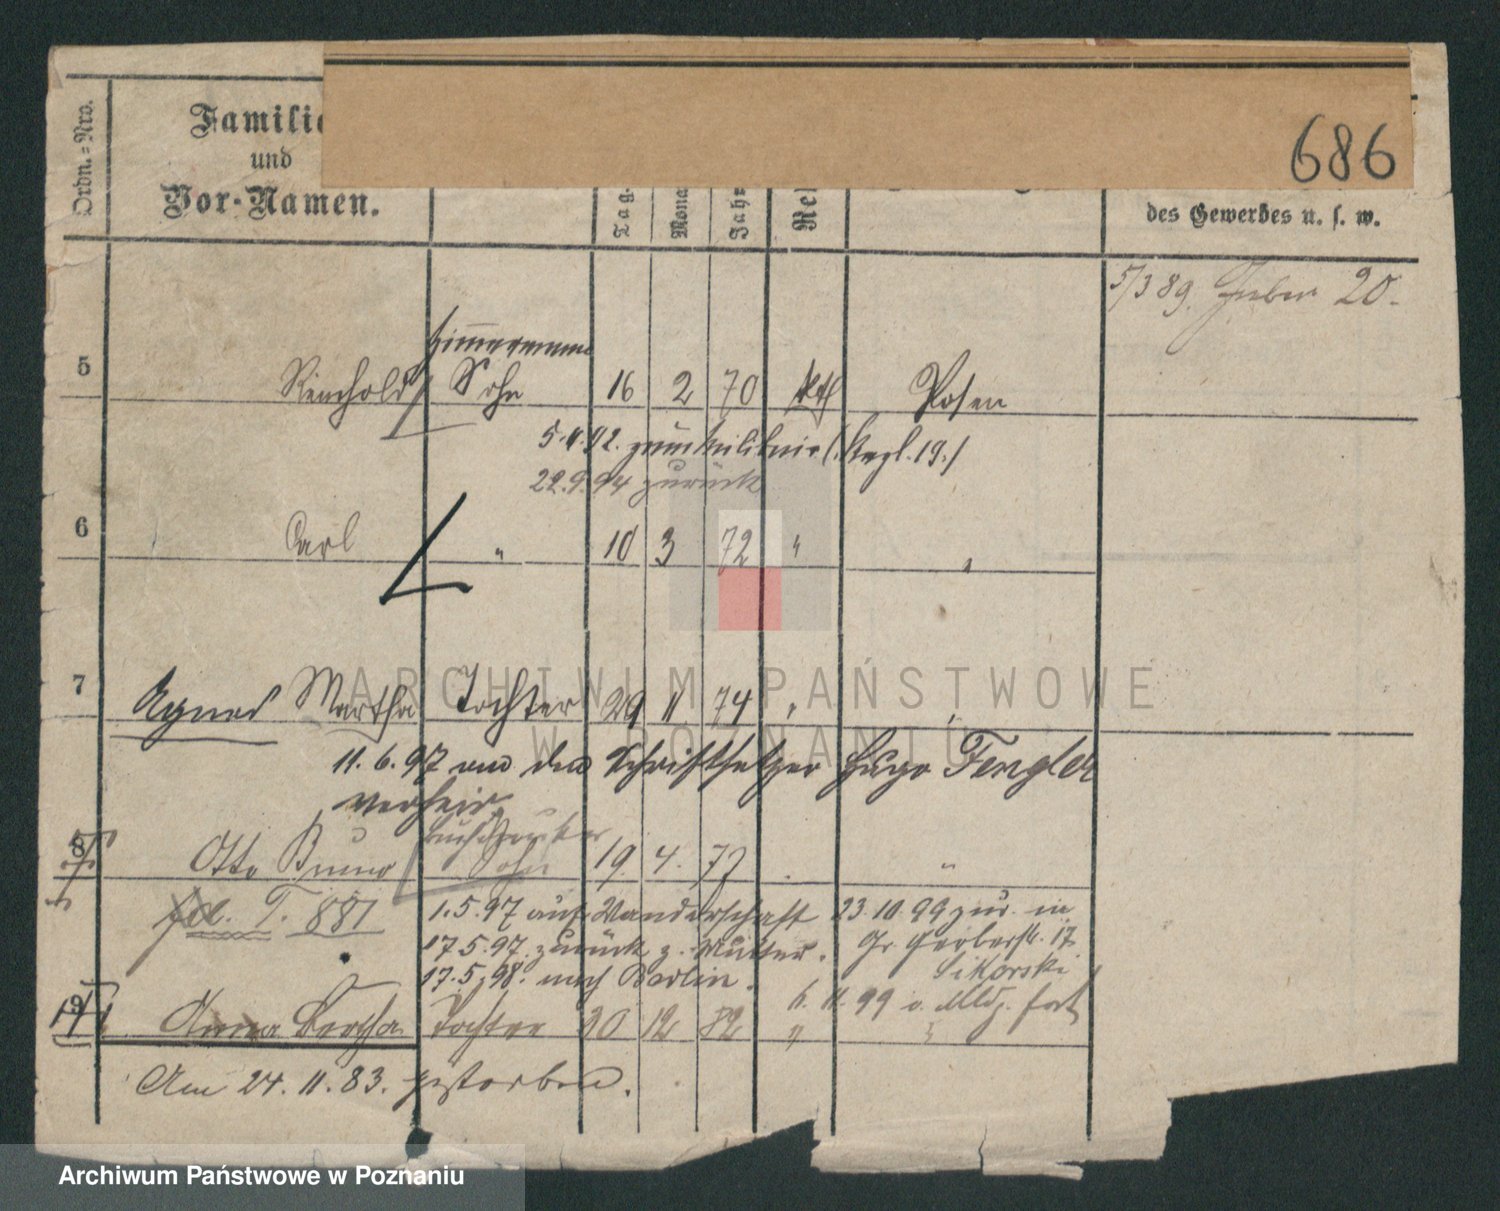 686
Ordn.=Nro.
Familie
und
Vor-Namen.
Tag.
Mona
Jahr
Rel
des Gewerbes u. s. w.
5/3 89. 20.
Zimmermann
5 Reinhold Sohn 16 2 70 kth Posen
5.4.92. 19./
22.9.94 zurück
6 Carl " 10 3 72 " "
7 Agnes Martha Tochter 29 11 74 "
11.6.97 an den Schriftsetzer Hugo Fengler
verheir.
Buchdrucker
8 Otto Bruno Sohn 19. 4. 77 "
T. 881
1.5.97 auf Wanderschaft
17.5.97 zurück z. Mutter.
17.5.98. nach Berlin.
23.10.99 zur. in
Gr. Gerberstr. 17
Sikorski
6.11.99 o. Meldg. fort
9 Anna Bertha Tochter 20 12 82 " "
Am 24.11.83. gestorben.
ARCHIWUM PAŃSTWOWE
W POZNANIU
Archiwum Państwowe w Poznaniu